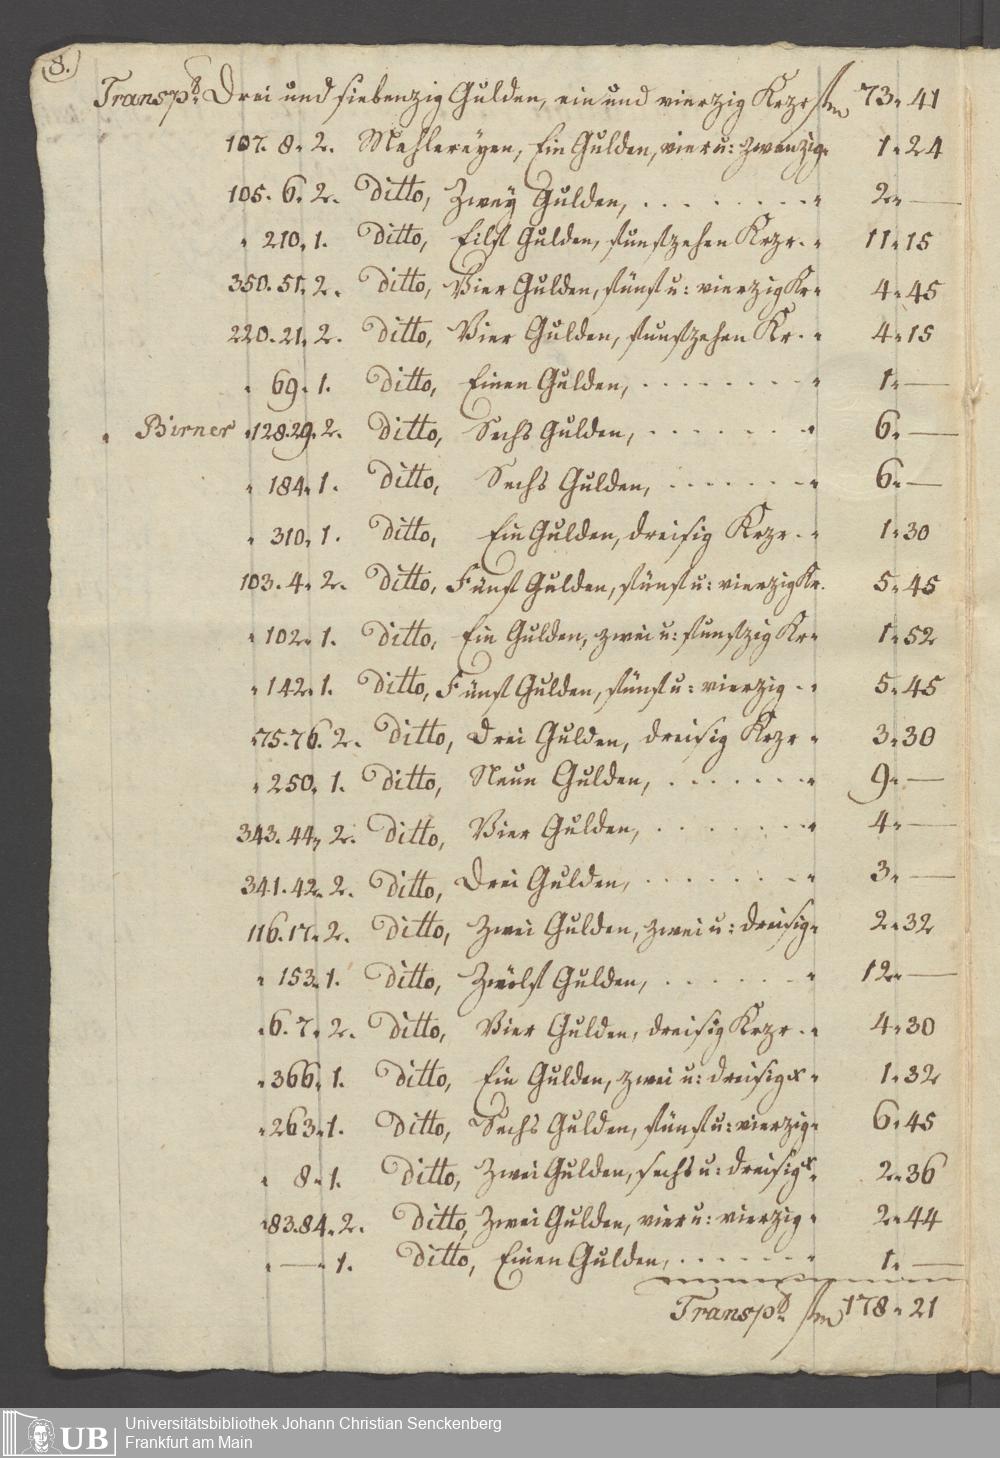 8.
Transpt. Drei und siebenzig Gulden, ein und vierzig Krzr fm 73 " 41
107. 8. 2. Mahlereyen, Ein Gulden, vier u: zwanzig " 1 " 24
105. 6. 2. Ditto, Zwey Gulden, . . . . . . . . " 2 " —
" 210. 1. Ditto, Eilf Gulden, funfzehen Krzr. " 11 " 15
350. 51. 2. Ditto, Vier Gulden, fünf u: vierzig Kr " 4 " 45
220. 21. 2. Ditto, Vier Gulden, funfzehen Kr. " 4 " 15
" 69. 1. Ditto, Einen Gulden, . . . . . . . . " 1 " —
" Birner " 128. 29. 2. Ditto, Sechs Gulden, . . . . . . . " 6 " —
" 184. 1. Ditto, Sechs Gulden, . . . . . . . " 6 " —
" 310. 1. Ditto, Ein Gulden, dreisig Krzr. " 1 " 30
103. 4. 2. Ditto, Fünf Gulden, fünf u: vierzig Kr. 5 " 45
" 102. 1. Ditto, Ein Gulden, zwei u: funfzig Kr " 1 " 52
" 142. 1. Ditto, Fünf Gulden, fünf u: vierzig . " 5 " 45
" 75. 76. 2. Ditto, Drei Gulden, dreisig Krzr " 3 " 30
" 250. 1. Ditto, Neun Gulden, . . . . . . . " 9 " —
343. 44. 2. Ditto, Vier Gulden, . . . . . . . " 4 " —
341. 42. 2. Ditto, Drei Gulden, . . . . . . . " 3 " —
116. 17. 2. Ditto, Zwei Gulden, zwei u: dreisig " 2 " 32
" 153. 1. Ditto, Zwölf Gulden, . . . . . . " 12 " —
" 6. 7. 2. Ditto, Vier Gulden, dreisig Krzr. " 4 " 30
" 366. 1. Ditto, Ein Gulden, zwei u: dreisig x " 1 " 32
" 263. 1. Ditto, Sechs Gulden, fünf u: vierzig " 6 " 45
" 8. 1. Ditto, Zwei Gulden, sechs u: dreisig x " 2 " 36
" 83. 84. 2. Ditto, Zwei Gulden, vier u: vierzig " 2 " 44
" — " 1. Ditto, Einen Gulden, . . . . . . " 1 " —
Transpt. fm 178 " 21
UB
Universitätsbibliothek Johann Christian Senckenberg
Frankfurt am Main